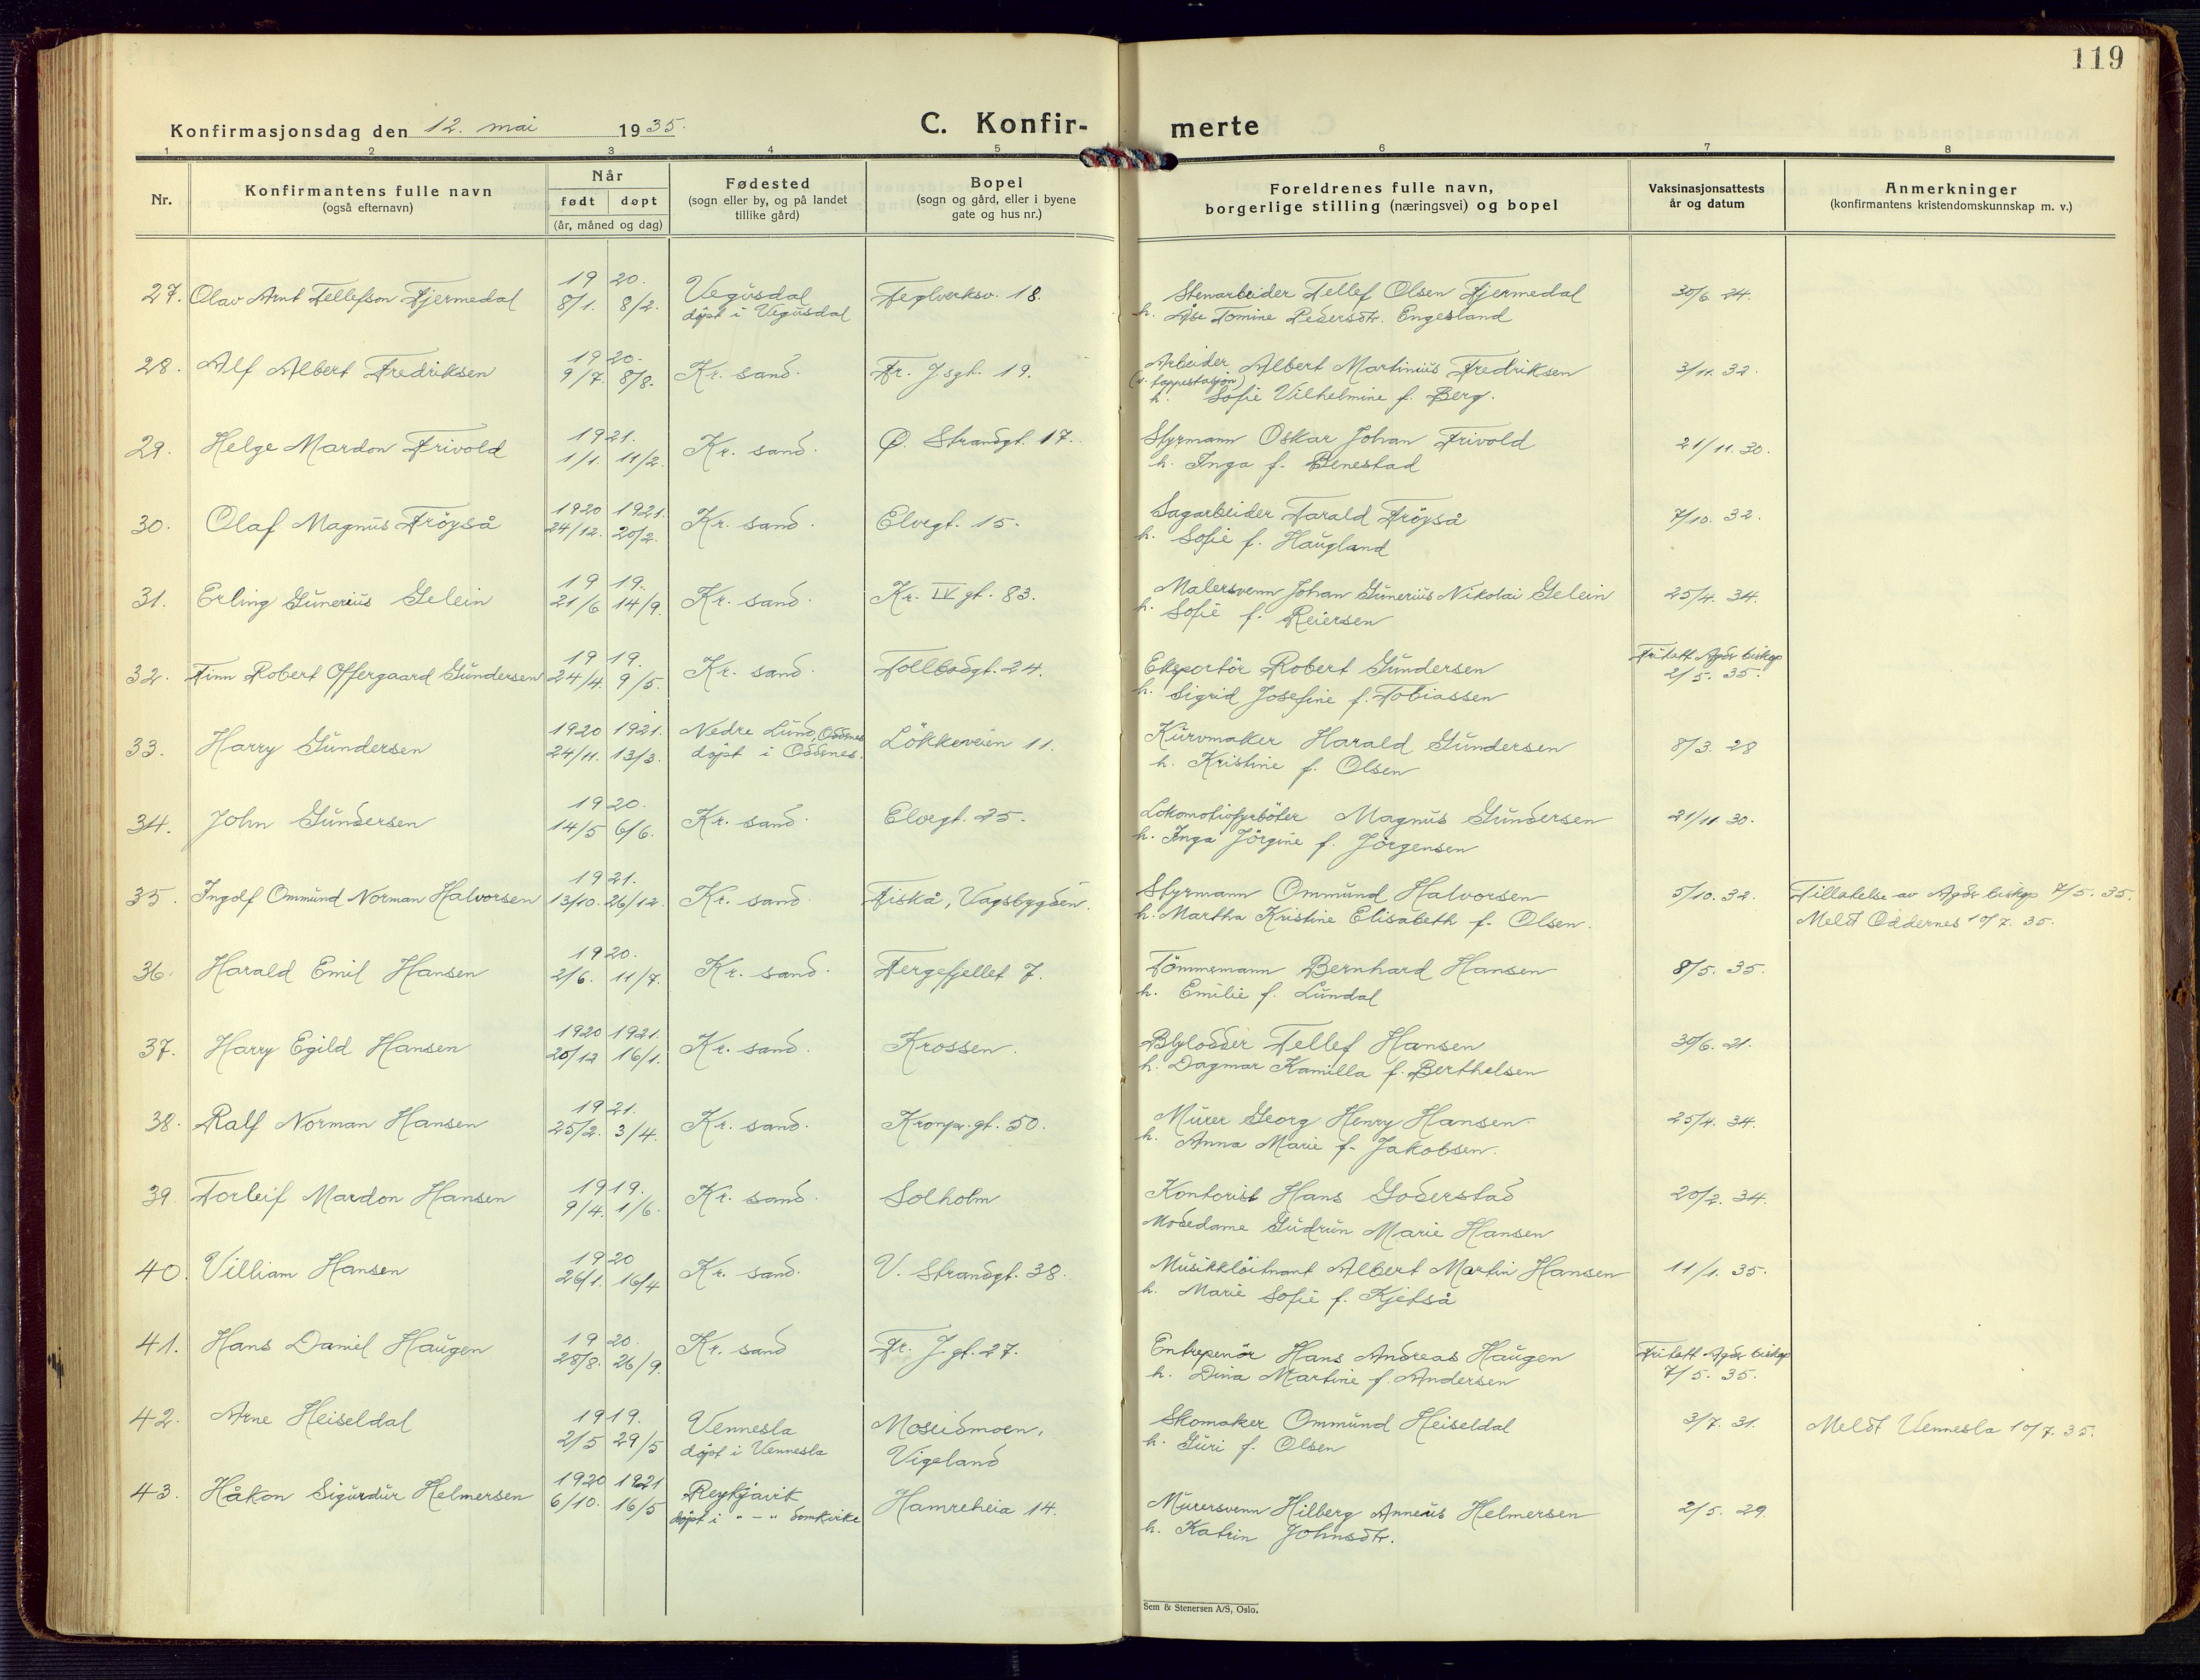 119
Konfirmasjonsdag den 12. mai 1935.
C. Konfir- merte
1 2 3 4 5 6 7 8
Nr.
Konfirmantens fulle navn
(også efternavn)
Når
født døpt
(år, måned og dag)
Fødested
(sogn eller by, og på landet
tillike gård)
Bopel
(sogn og gård, eller i byene
gate og hus nr.)
Foreldrenes fulle navn,
borgerlige stilling (næringsvei) og bopel
Vaksinasjonsattests
år og datum
Anmerkninger
(konfirmantens kristendomskunnskap m. v.)
27. Olav Arnt Tellefson Fjermedal 1920. 8/1. 8/2. Vegusdal Teglverksv. 18. Stenarbeider Tellef Olsen Fjermedal 30/6. 24.
døpt i Vegusdal h. Åse Tomine Pedersdtr. Engesland
28. Alf Albert Fredriksen 1920. 9/7. 8/8. Kr. sand. Fr. J sgt. 19. Arbeider Albert Martinius Fredriksen 3/11. 32.
(v. tappestasjon)
h. Sofie Vilhelmine f. Berg.
29. Helge Mardon Trivold 1921. 1/1. 11/2. Kr. sand. Ø. Strandgt. 17. Styrmann Oskar Johan Trivold 21/11. 30.
h. Inga f. Benestad
30. Olaf Magnus Frøyså 1920 1921. 24/12. 20/2. Kr. sand. Elvegt. 15. Sagarbeider Tarald Frøyså 7/10. 32.
h. Sofie f. Haugland
31. Erling Gunerius Gelein 1919. 21/6 14/9. Kr. sand. Kr. IV gt. 83. Malersvenn Johan Gunerius Nikolai Gelein 25/4. 34.
h. Sofie f. Reiersen
32. Finn Robert Offergaard Gundersen 1919. 24/4. 9/5. Kr. sand. Tollbodgt. 24. Eksportör Robert Gundersen Fritatt Agder biskop
h. Sigrid Josefine f. Tobiassen 2/5. 35.
33. Harry Gundersen 1920 1921. 24/11. 13/3. Nedre Lund, Oddernes Lökkeveien 11. Kurvmaker Harald Gundersen 8/3. 28
døpt i Oddernes. h. Kristine f. Olsen
34. John Gundersen 1920. 14/5 6/6. Kr. sand. Elvegt. 25. Lokomotivfyrböter Magnus Gundersen 21/11. 30.
h. Inga Jörgine f. Jörgensen
35. Ingolf Ommund Norman Halvorsen 1921. 13/10. 26/12. Kr. sand. Fiskå, Vagsbygden. Styrmann Ommund Halvorsen 5/10. 32. Tillatelse av Agder biskop 7/5. 35.
h. Martha Kristine Elisabeth f. Olsen. Meldt Oddernes 10/7. 35.
36. Harald Emil Hansen 1920. 2/6. 11/7. Kr. sand. Fergefjellet 7. Tömmermann Bernhard Hansen 8/5. 35.
h. Emilie f. Lundal
37. Harry Egild Hansen 1920 1921. 20/12 16/1. Kr. sand. Krossen. Blylodder Tellef Hansen 30/6. 21.
h. Dagmar Kamilla f. Berthelsen
38. Ralf Norman Hansen 1921. 25/2. 3/4. Kr. sand. Kronpr. gt. 50. Murer Georg Henry Hansen 25/4. 34.
h. Anna Marie f. Jakobsen.
39. Torleif Mardon Hansen 1919. 9/4. 1/6. Kr. sand. Solholm Kontorist Hans Goderstad 20/2. 34.
Modedame Gudrun Marie Hansen
40. Villiam Hansen 1920 26/1. 16/4 Kr. sand. V. Strandgt. 38. Musikklöitnant Albert Martin Hansen 11/1. 35.
h. Marie Sofie f. Kjetså
41. Hans Daniel Haugen 1920. 28/8. 26/9. Kr. sand Fr. J. gt. 27. Entrepenör Hans Andreas Haugen Fritatt Agder biskop
h. Dina Martine f. Andersen 7/5. 35.
42. Arne Heiseldal 1919. 2/5 29/5 Vennesla Moseidmoen, Skomaker Ommund Heiseldal 3/7. 31. Meldt Vennesla 10/7. 35.
døpt i Vennesla Vigeland h. Guri f. Olsen
43. Håkon Sigurdur Helmersen 1920 1921 6/10. 16/5 Reykjavik Hamreheia 14. Murersvenn Hilberg Anneus Helmersen 2/5. 29.
døpt i " — " domkirke h. Katrin Johnsdtr.
Sem & Stenersen A/S, Oslo.